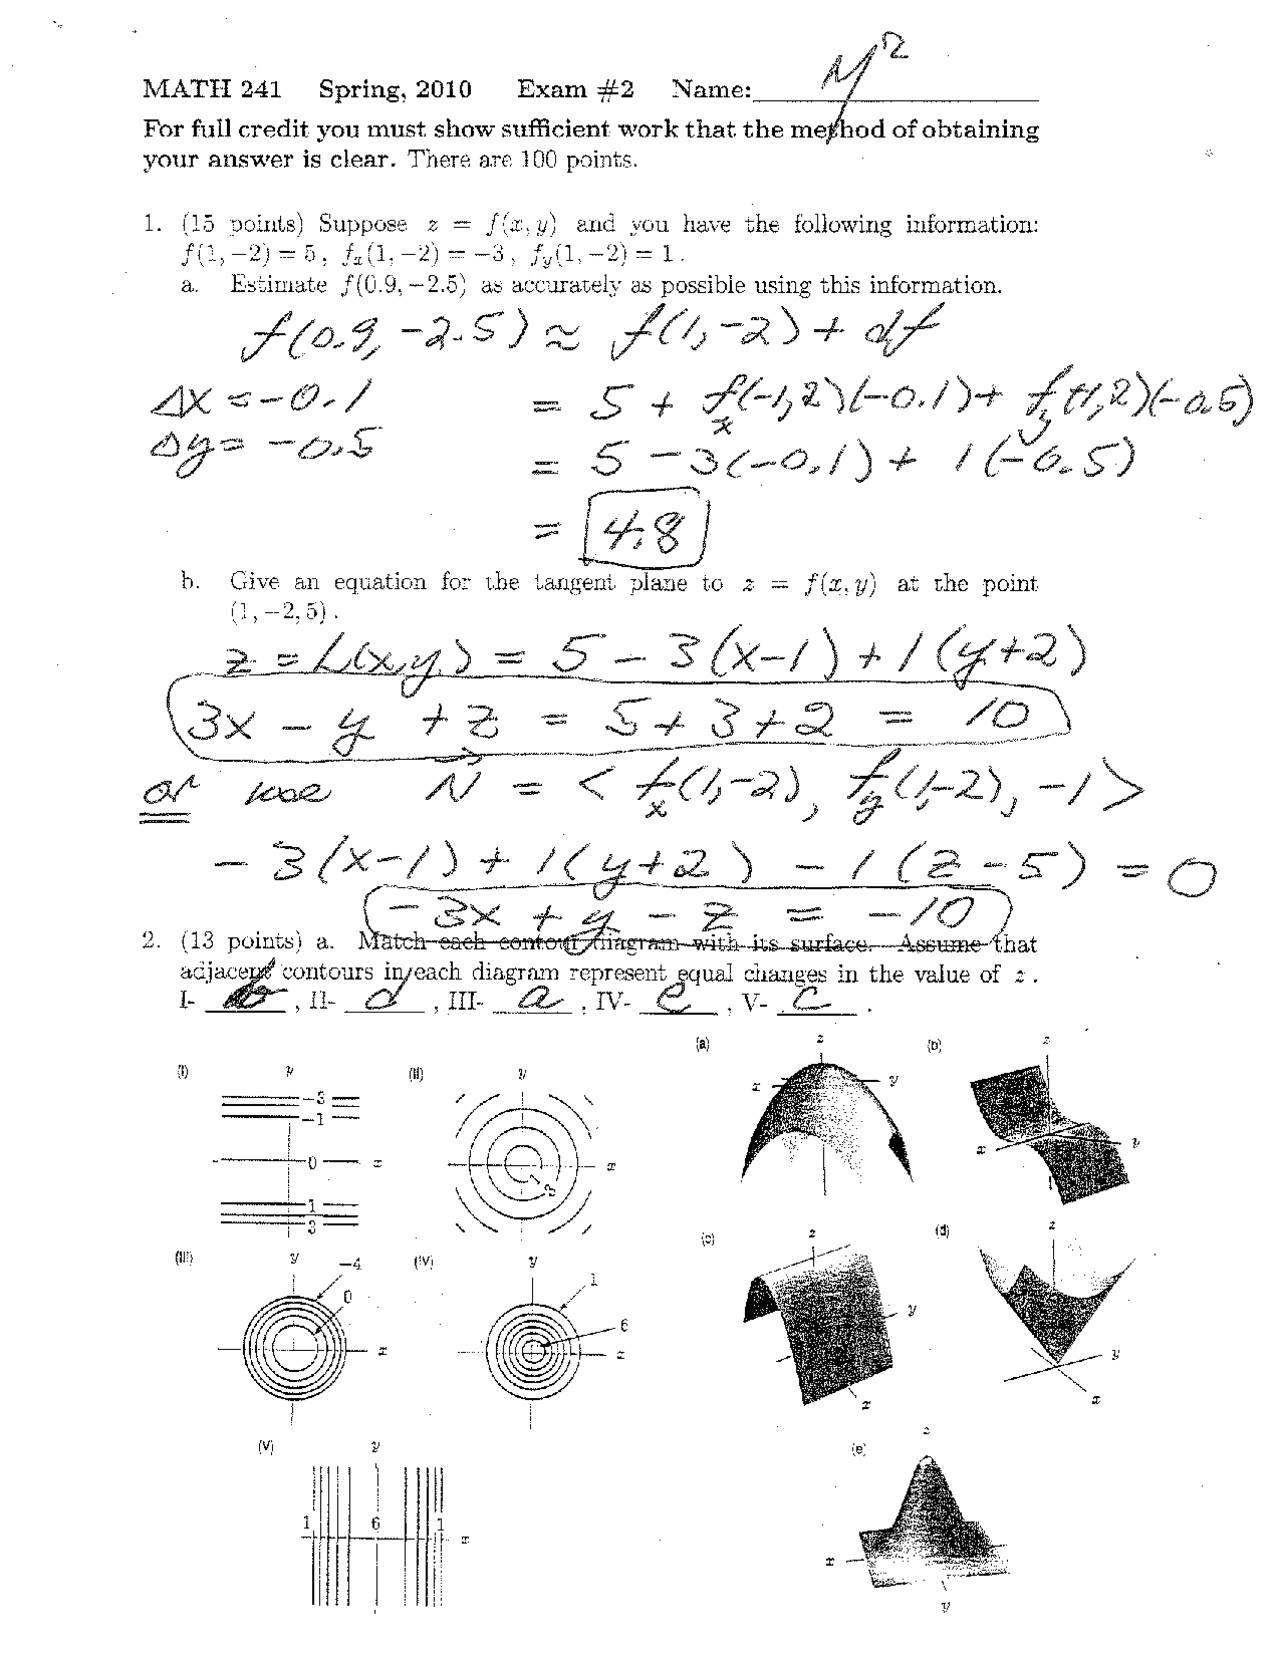 MATH 241 Spring, 2010 Exam #2 Name:
For full credit you must show sufficient work that the method of obtaining
your answer is clear. There are 100 points.
1. (15 points) Suppose z = f(x, y) and you have the following information:
f(1, −2) = 5 , fx(1, −2) = −3 , fy(1, −2) = 1 .
a. Estimate f(0.9, −2.5) as accurately as possible using this information.
f(0.9, -2.5) ≈ f(1,-2) + df
Δx = -0.1 = 5 + fx(-1,2)(-0.1) + fy(+1,2)(-0.5)
Δy = -0.5 = 5 - 3(-0.1) + 1(-0.5)
= 4.8
b. Give an equation for the tangent plane to z = f(x, y) at the point
(1, −2, 5) .
z = L(x,y) = 5 - 3(x-1) + 1(y+2)
3x - y + z = 5 + 3 + 2 = 10
or use N = < fx(1,-2), fy(1,-2), -1 >
-3(x-1) + 1(y+2) - 1(z-5) = 0
-3x + y - z = -10
2. (13 points) a. Match each contour diagram with its surface. Assume that
adjacent contours in each diagram represent equal changes in the value of z .
I- b , II- d , III- a , IV- e , V- c .
(a) z x y
(b) z x y
(I) y -3 -1 0 x 1 3
(II) y x 3
(c) z y x
(d) z y x
(III) y -4 0 x
(IV) y 1 6 x
(V) y 1 6 1 x
(e) z x y